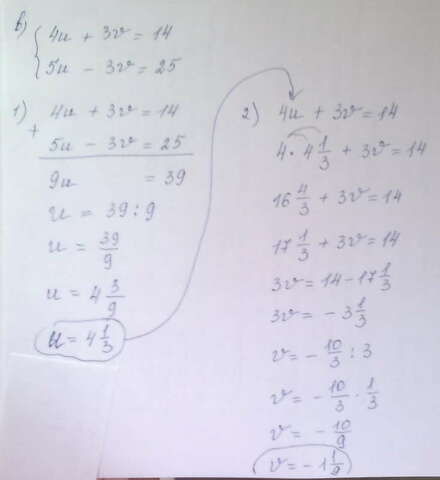 в)
4u + 3v = 14
5u - 3v = 25
1) 4u + 3v = 14
+
5u - 3v = 25
9u = 39
u = 39 : 9
u = 39/9
u = 4 3/9
u = 4 1/3
2) 4u + 3v = 14
4 · 4 1/3 + 3v = 14
16 4/3 + 3v = 14
17 1/3 + 3v = 14
3v = 14 - 17 1/3
3v = - 3 1/3
v = - 10/3 : 3
v = - 10/3 · 1/3
v = - 10/9
v = - 1 1/9